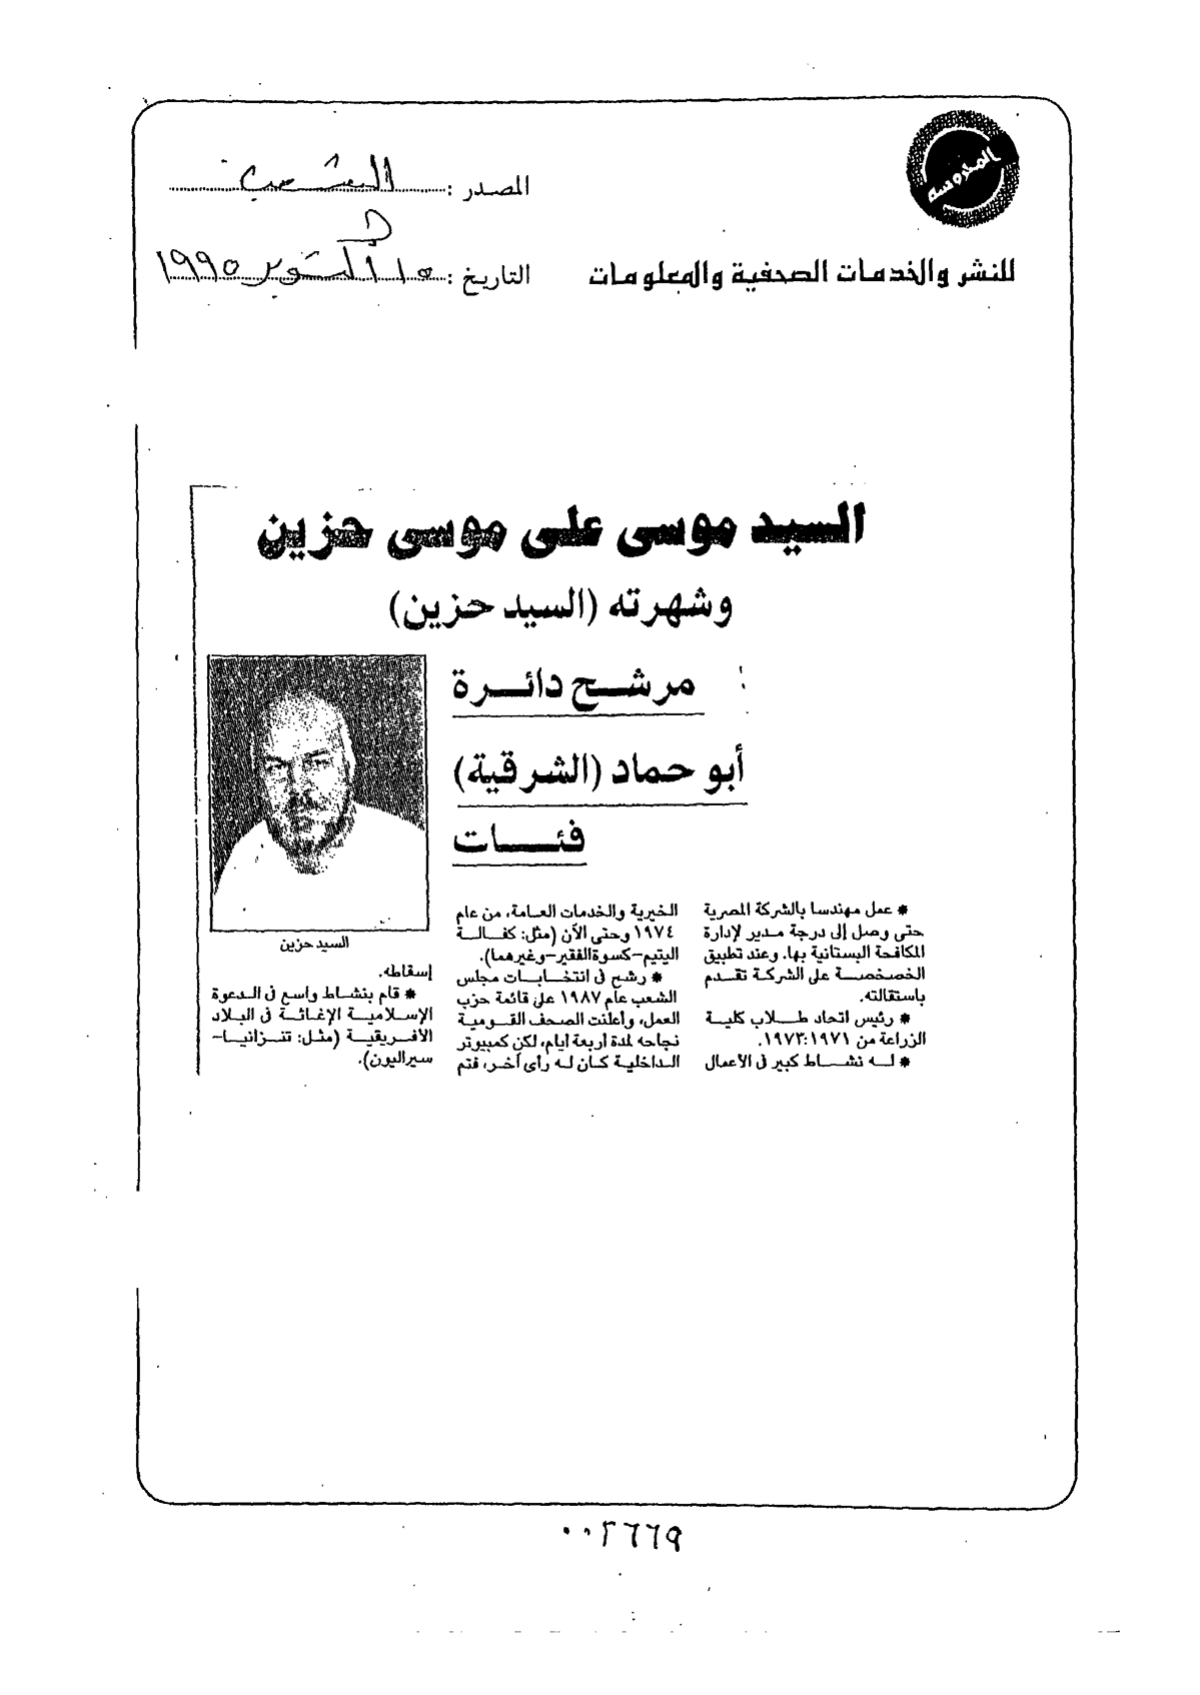 المحروسة
للنشر والخدمات الصحفية والمعلومات
المصدر : الشعب
التاريخ : ١٥ أكتوبر ١٩٩٥
السيد موسى على موسى حزين
وشهرته (السيد حزين)
مرشح دائرة
أبو حماد (الشرقية)
فئات
* عمل مهندسا بالشركة المصرية
حتى وصل إلى درجة مدير لإدارة
المكافحة البستانية بها. وعند تطبيق
الخصخصة على الشركة تقدم
باستقالته.
* رئيس اتحاد طلاب كلية
الزراعة من ١٩٧١:١٩٧٣.
* له نشاط كبير فى الأعمال
الخيرية والخدمات العامة، من عام
١٩٧٤ وحتى الآن (مثل: كفالة
اليتيم–كسوة الفقير–وغيرهما).
* رشح فى انتخابات مجلس
الشعب عام ١٩٨٧ على قائمة حزب
العمل، وأعلنت الصحف القومية
نجاحه لمدة أربعة أيام، لكن كمبيوتر
الداخلية كان له رأى آخر، فتم
السيد حزين
إسقاطه.
* قام بنشاط واسع فى الدعوة
الإسلامية الإغاثة فى البلاد
الأفريقية (مثل: تنزانيا–
سيراليون).
٠٠٢٦٦٩